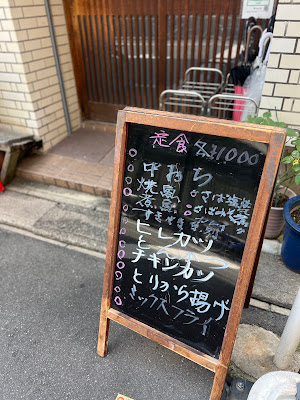 定食 各¥1000
中おち
焼魚 ○さば塩焼
煮魚 ○さばみそ煮
すきやき
ヒレカツ
とんかつ
チキンカツ
とりから揚げ
ミックスフライ